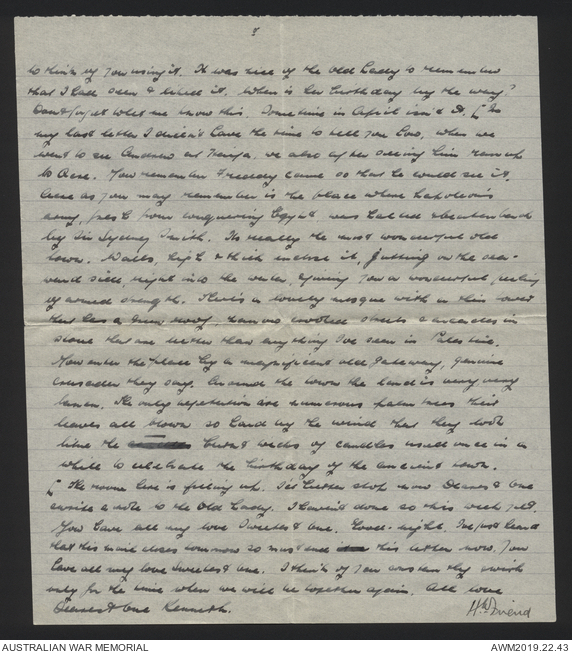 8
to think of you using it. It was nice of the Old Lady to remember
that I had seen & liked it. When is her birthday by the way?
Don't forget to let me know this. Sometime in April isn't it. [In
my last letter I didn't have the time to tell you how, when we
went to see Andrew at, we also after seeing him ran up
to Acre. You remember Freddy came so that he could see it.
Acre as you may remember is the place where Napoleon's
army, fresh from conquering Egypt was halted & beaten back
by Sir Sydney Smith. Its really the most wonderful old
town. Walls, high & thick enclose it, jutting on the sea-
ward side, right into the water, giving you a wonderful feeling
of armed strength. There's a lovely mosque with a thin
that has a green roof, narrow cobbled streets & arcades in
stone that are better than anything I've seen in Palestine.
You enter the place by a magnificent old gateway, genuine
crusader they say. Around the town the land is very very
barren. The only vegetation are numerous palm trees their
leaves all blown so hard by the wind that they look
like the burnt wicks of candles used once in a
while to celebrate the birthday of the ancient town.
[The room here is filling up. I'd better stop now Dearest One
& write a note to the Old Lady. I haven't done so this week yet.
You have all my love Sweetest One. Good-night. I've just heard
that this mail closes tomorrow so must end this letter now. You
have all my love Sweetest one. I think of you constantly & wish
only for the time when we will be together again. All love
Dearest One Kenneth.
AUSTRALIAN WAR MEMORIAL
AWM2019.22.43